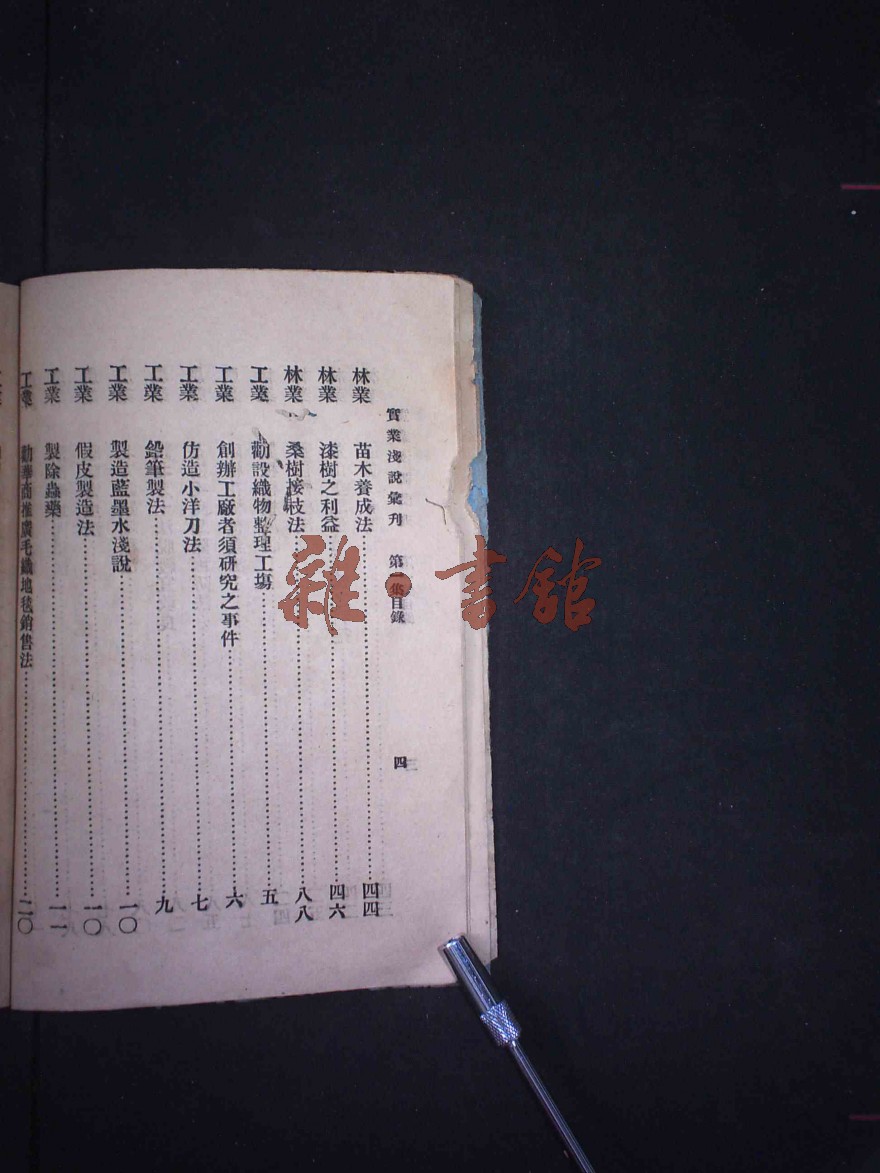 實業淺說彙刊 第一集目錄 四
林業 苗木養成法 四四
林業 漆樹之利益 四六
林業 桑樹接枝法 八八
工業 勸設織物整理工塲 五
工業 創辦工廠者須研究之事件 六
工業 仿造小洋刀法 七
工業 鉛筆製法 九
工業 製造藍墨水淺說 一〇
工業 假皮製造法 一〇
工業 製除蟲藥 一一
工業 勸華商推廣毛織地毯銷售法 二〇
雜·書館